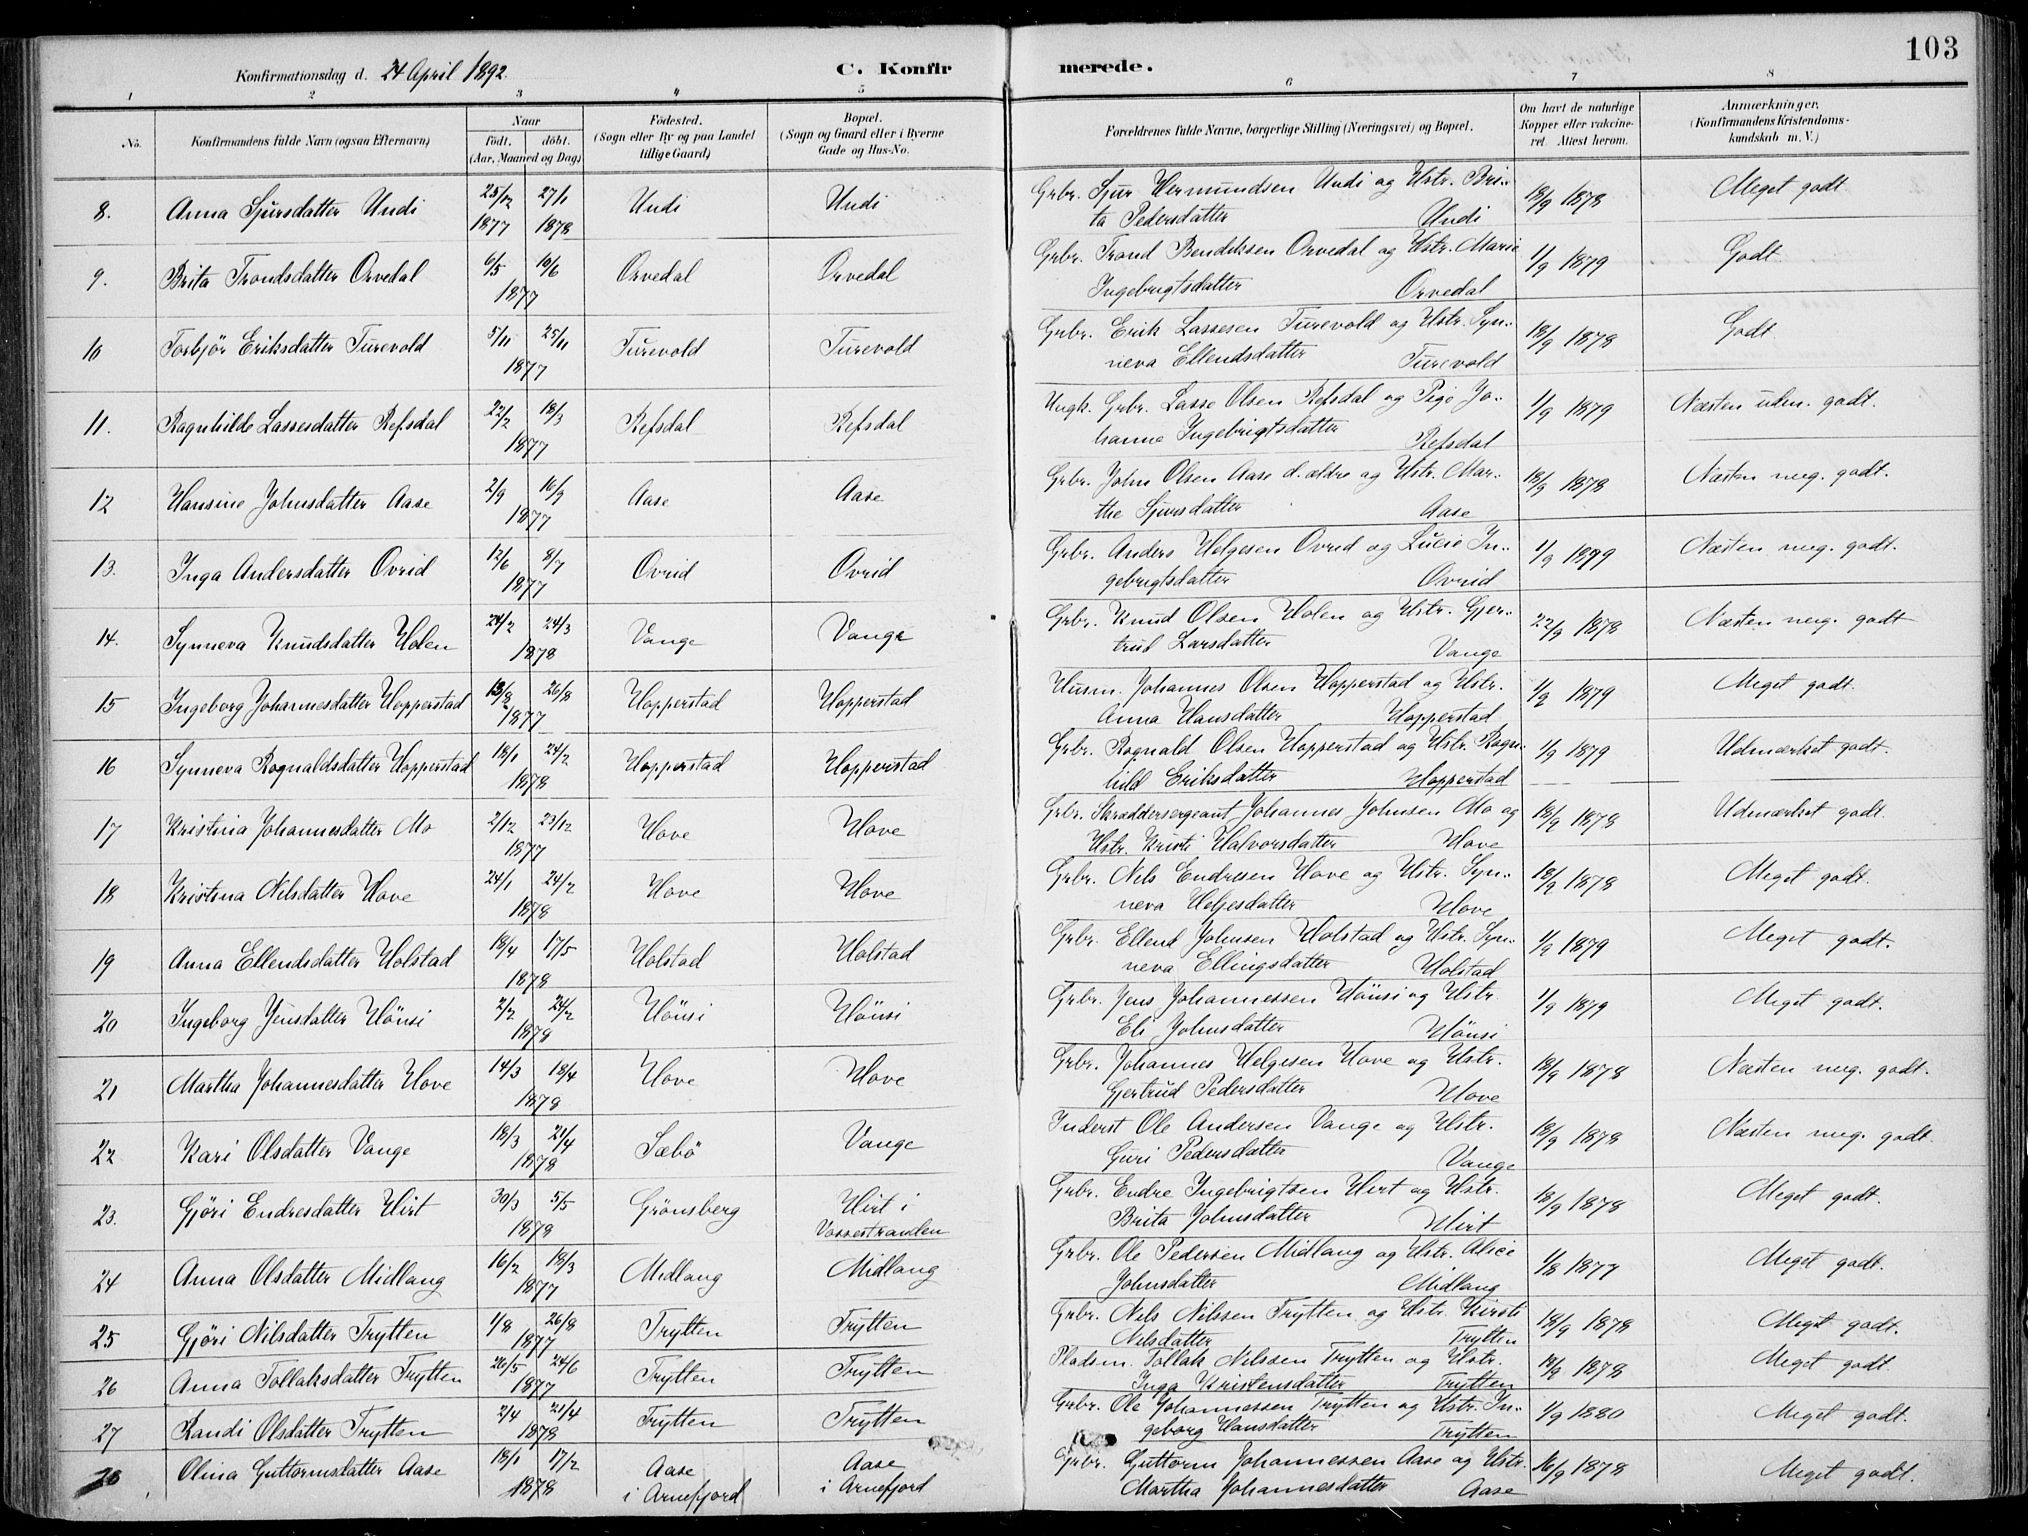 103
Konfirmationsdag d. 24 April 1892.
C. Konfirmerede.
1 2 3 4 5 6 7 8
No. Konfirmandens fulde Navn (ogsaa Efternavn) Naar Födt. döbt. (Aar, Maaned og Dag) Födested. (Sogn eller By og paa Landet tillige Gaard) Bopæl. (Sogn og Gaard eller i Byerne Gade og Hus-No. Forældrenes fulde Navne, borgerlige Stilling (Næringsvei) og Bopæl. Om havt de naturlige Kopper eller vakcineret. Attest herom. Anmærkninger. (Konfirmandens Kristendomskundskab m. V.)
8. Anna Sjursdatter Undi 25/12 1877 27/1 1878 Undi Undi Grbr. Sjur Hermundsen Undi og Hstr. Bri-
ta Pedersdatter Undi 18/9 1878 Meget godt
9. Brita Trondsdatter Orvedal 6/5 10/6 1877 Orvedal Orvedal Grbr. Trond Bendiksen Orvedal og Hstr. Marie
Ingebrigtsdatter Orvedal 1/9 1879 Godt
10 Torbjör Eriksdatter Turevold 5/11 25/11 1877 Turevold Turevold Grbr. Erik Lassesen Turevold og Hstr. Syn-
neva Ellendsdatter Turevold 18/9 1878 Godt
11. Ragnhilde Lassesdatter Refsdal 22/2 18/3 1877 Refsdal Refsdal Ungk. Grbr. Lasse Olsen Refsdal og Pige Jo-
hanne Ingebrigtsdatter Refsdal 1/9 1879 Næsten udm. godt.
12 Hansine Johnsdatter Aase 2/9 16/9 1877 Aase Aase Grbr. John Olsen Aase d. ældre og Hstr. Mar-
the Sjursdatter Aase 18/9 1878 Næsten meg. godt.
13. Inga Andersdatter Ovrid 12/6 8/7 1877 Ovrid Ovrid Grbr. Anders Helgesen Ovrid og Lucie In-
gebrigtsdatter Ovrid 1/9 1879 Næsten meg. godt.
14. Synneva Knudsdatter Holen 24/2 24/3 1878 Vange Vange Grbr. Knud Olsen Holen og Hstr. Gjer-
trud Larsdatter Vange 22/9 1878 Næsten meg. godt
15 Ingeborg Johannesdatter Hopperstad 13/8 26/8 1877 Hopperstad Hopperstad Husm. Johannes Olsen Hopperstad og Hstr.
Anna Hansdatter Hopperstad 1/9 1879 Meget godt.
16 Synneva Rognaldsdatter Hopperstad 18/1 24/2 1878 Hopperstad Hopperstad Grbr. Rognald Olsen Hopperstad og Hstr. Ragn
hild Eriksdatter Hopperstad 1/9 1879 Udmærket godt.
17 Kristina Johannesdatter Mo 2/12 23/12 1877 Hove Hove Grbr. Skræddersergeant Johannes Johnsen Mo og
Hstr. Kristi Halvorsdatter Hove 18/9 1878 Udmærket godt.
18 Kristina Nilsdatter Hove 24/1 24/2 1878 Hove Hove Grbr. Nils Endresen Hove og Hstr. Syn-
neva Helgesdatter Hove 18/9 1878 Meget godt.
19 Anna Ellendsdatter Holstad 18/4 17/5 1878 Holstad Holstad Grbr. Ellend Johnsen Holstad og Hstr. Syn-
neva Ellingsdatter Holstad 1/9 1879 Meget godt.
20 Ingeborg Jensdatter Hönsi 2/2 24/2 1878 Hönsi Hönsi Grbr. Jens Johannessen Hönsi og Hstr.
Eli Johnsdatter Hönsi 1/9 1879 Meget godt.
21 Martha Johannesdatter Hove 14/3 18/4 1878 Hove Hove Grbr. Johannes Helgesen Hove og Hstr.
Gjertrud Pedersdatter Hove 18/9 1878 Næsten meg. godt.
22 Kari Olsdatter Vange 18/3 21/4 1878 Sæbö Vange Inderst Ole Andersen Vange og Hstr.
Guri Pedersdatter Vange 18/9 1878 Næsten meg. godt.
23. Gjöri Endresdatter Hirt 30/3 5/5 1878 Grönsberg Hirt i
Vossestranden Grbr. Endre Ingebrigtsen Hirt og Hstr.
Brita Johnsdatter Hirt 18/9 1878 Meget godt.
24 Anna Olsdatter Midlang 16/2 18/3 1877 Midlang Midlang Grbr. Ole Pedersen Midlang og Hstr. Alice
Johnsdatter Midlang 1/8 1877 Meget godt.
25 Gjöri Nilsdatter Trytten 1/8 26/8 1877 Trytten Trytten Grbr. Nils Nilssen Trytten og Hstr. Kirsti
Nilsdatter Trytten 18/9 1878 Meget godt.
26 Anna Tollaksdatter Trytten 26/5 24/6 1877 Trytten Trytten Pladsm. Tollak Nilssen Trytten og Hstr.
Inga Kristensdatter Trytten 18/9 1878 Meget godt
27 Randi Olsdatter Trytten 2/4 21/4 1878 Trytten Trytten Grbr. Ole Johannessen Trytten og Hstr. In-
geborg Hansdatter Trytten 1/9 1880 Meget godt.
28 Olina Guttormsdatter Aase 18/1 17/2 1878 Aase
i Arnefjord Aase
i Arnefjord Grbr. Guttorm Johannessen Aase og Hstr.
Martha Johannesdatter Aase 16/9 1878 Meget godt.